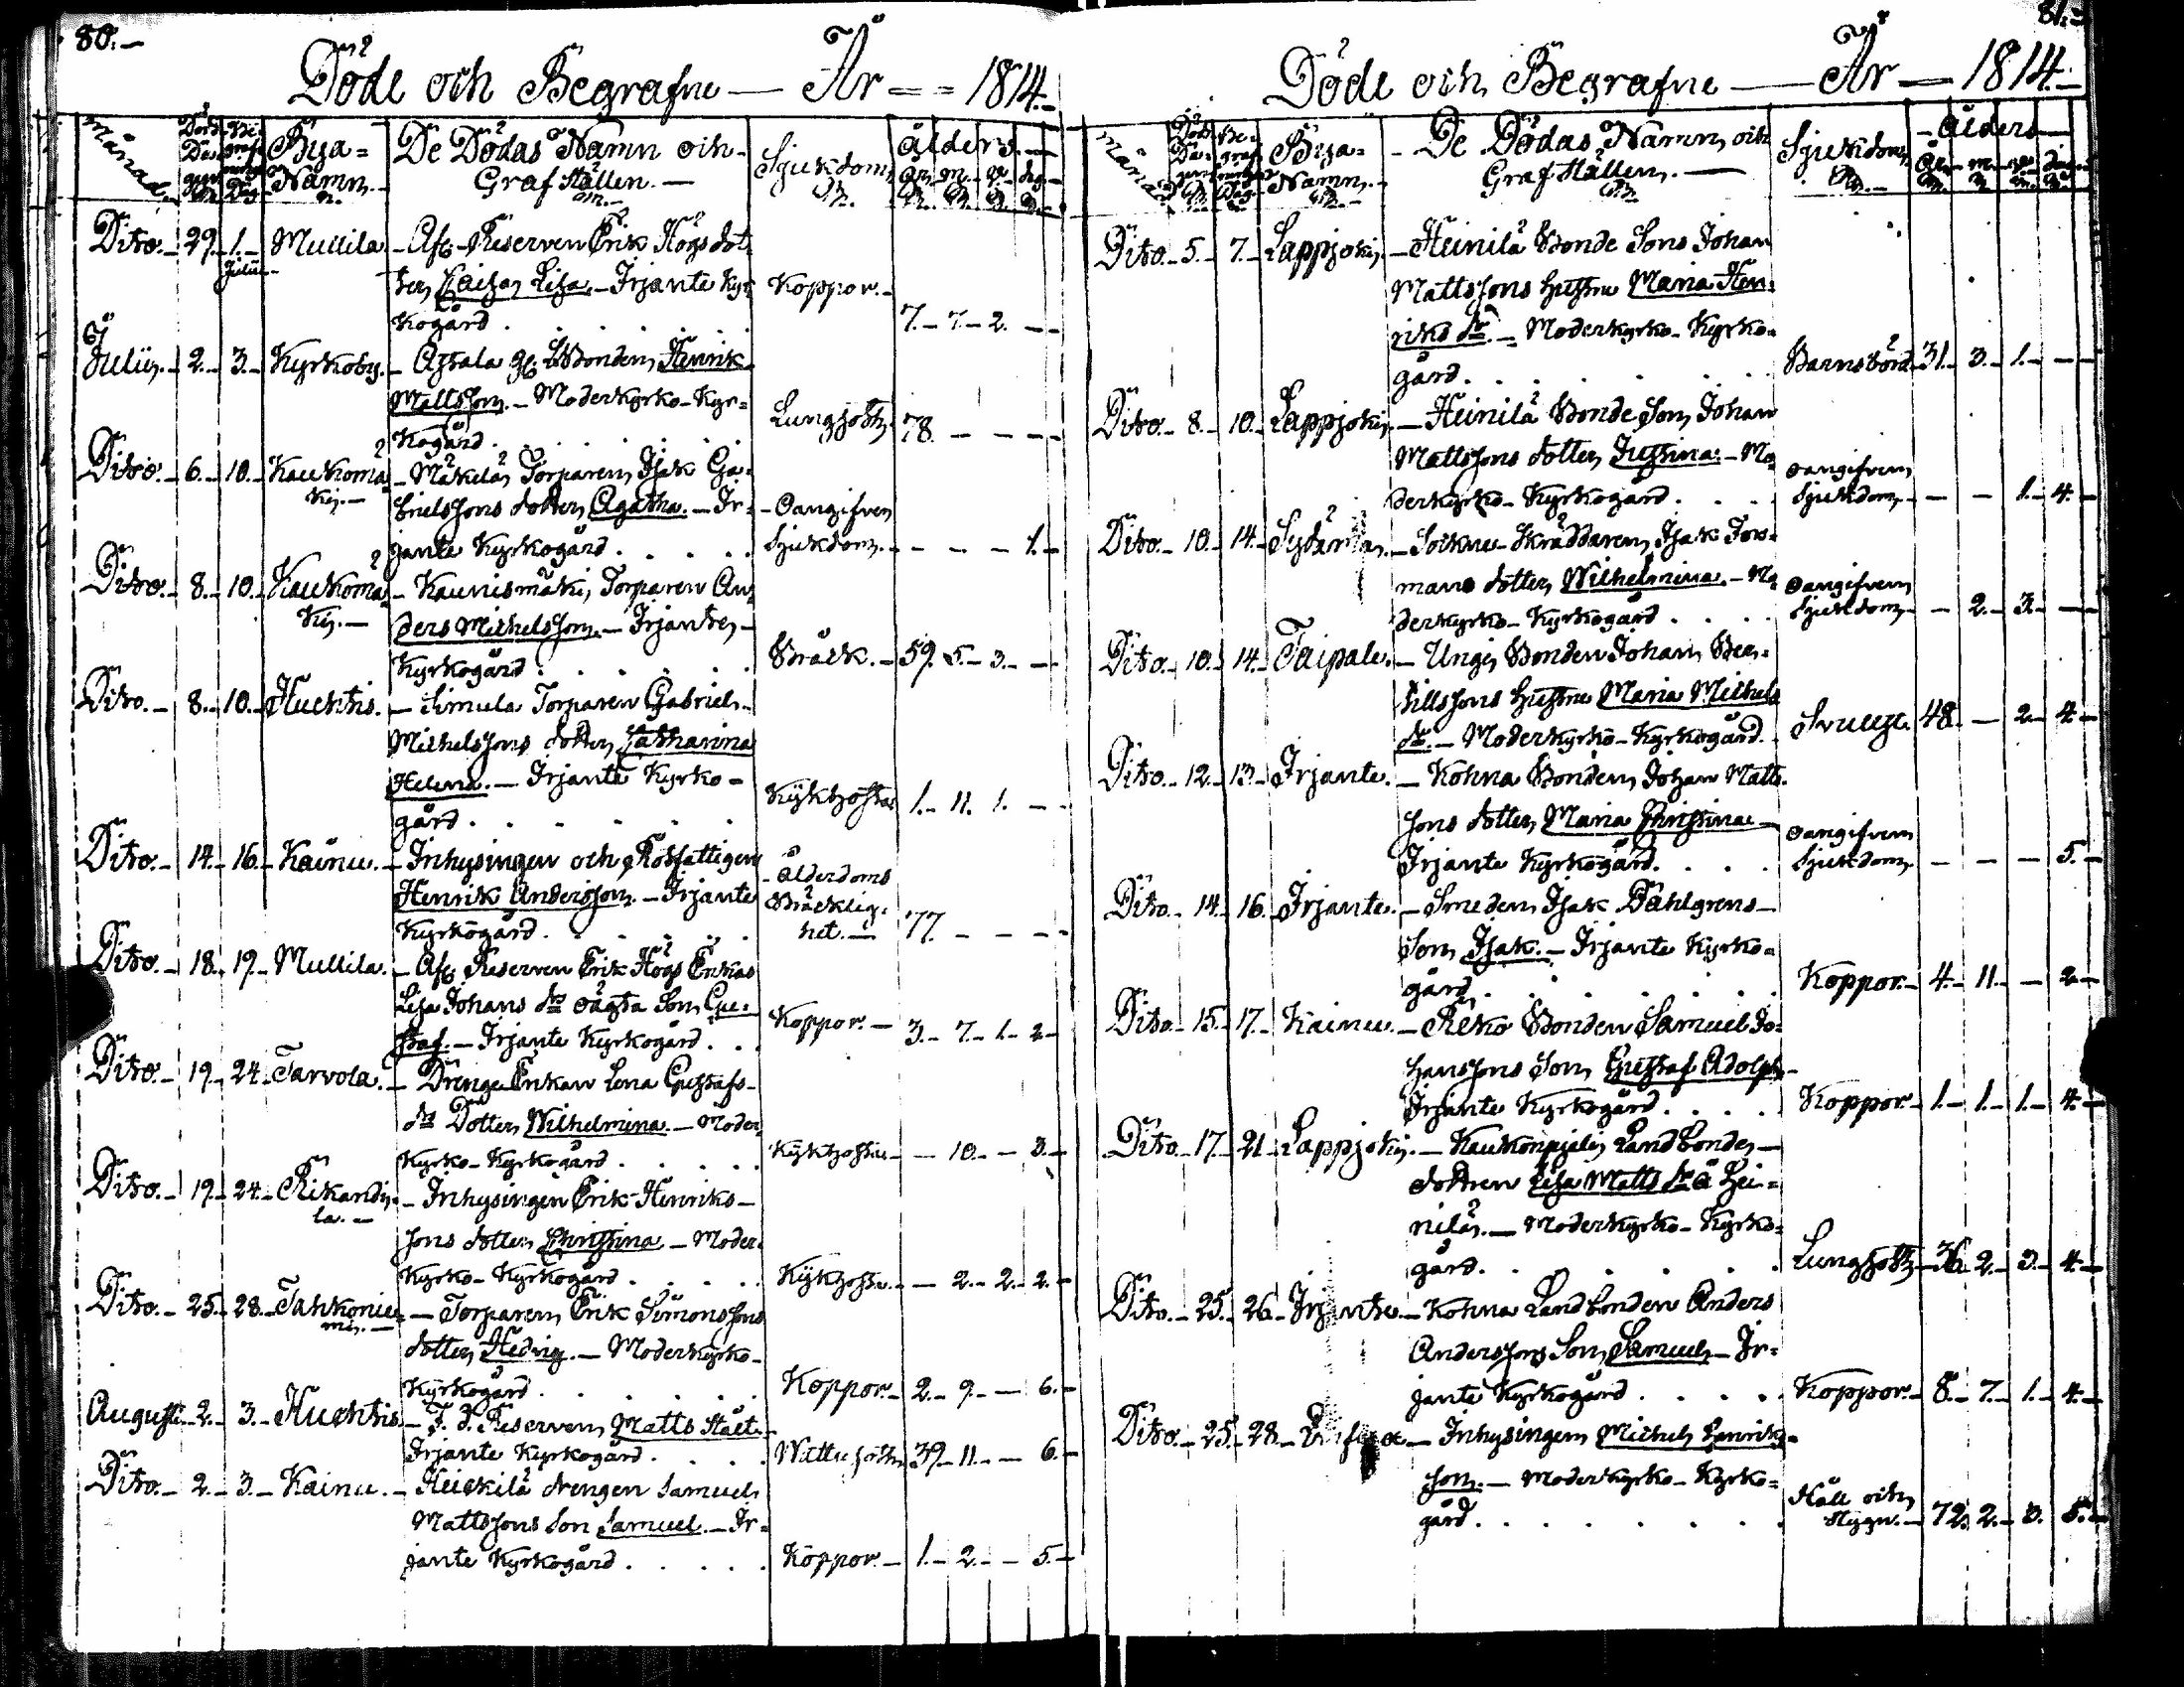 80.-
Döde och Begrafne — År = = 1814.-
Månad.
Döds Da= gen
Be= grafnings Dag
Bya= Namn.-
De Dödas Namn och
Graf Ställen.—
Sjukdom
Ålders.—
år. m. v. dag.
Dito.- 29. 1. Julii Mullila - Afl. Reserven Erik Högs dot
ter Caisa Lisa.- Irjante Kyr
kogård . . . . . Koppor.- 7.- 7.- 2. - -
Julii.- 2.- 3.- Kyrkoby.- Assala gl. Bonden Henrik
Mattsson.- Moderkyrko-Kyr=
kogård . . . . . Lungsot 78. - - - -
Dito.- 6.- 10.- Kaukoma
ki.- - Mäkilä Torparen Isak Ga=
brielssons dotter Agatha.- Ir=
jante Kyrkogård . . . . Oangifven
Sjukdom.- - - - 1.-
Dito.- 8.- 10.- Kaukoma
ki.- - Kaunismäki Torparen An
ders Michelsson.- Irjante
Kyrkogård . . . . . Bråck.- 59. 5.- 3.- -
Dito.- 8.- 10.- Huchtis.- Simula Torparen Gabriel
Michelssons dotter Catharina
Helena.- Irjante Kyrko-
gård . . . . . . Kykhosta 1.- 11. 1. - -
Dito.- 14.- 16.- Kainu.- Inhysingen och Rotfattigen
Henrik Andersson.- Irjante
Kyrkogård . . . . . Ålderdoms
Bräcklig=
het.- 77. - - - -
Dito.- 18. 19.- Mullila.- Afl. Reserven Erik Högs Enkas
Lisa Johans dr oägta Son Gu=
staf.- Irjante Kyrkogård . . . Koppor.- 3.- 7.- 1.- 2-
Dito.- 19.- 24. Tarvola.- Drenge Enkan Lena Gustafs-
dr Dotter Wilhelmina.- Moder
Kyrko-Kyrkogård . . . . . Kykhosta- - 10.- - 3.-
Dito.- 19.- 24.- Rikandi
la.- - Inhysingen Erik Henriks-
sons dotter Christina.- Moder
Kyrko-Kyrkogård . . . . . Kykhosta.- - 2.- 2.- 2.-
Dito.- 25.- 28.- Tahkonie
mi.- - Torparen Erik Simonssons
dotter Hedvig.- Moderkyrko-
Kyrkogård . . . . . . Koppor.- 2.- 9.- - 6.-
Augusti- 2.- 3.- Huchtis- F. d. Reserven Matts Stålt
Irjante Kyrkogård . . . . Wattusot 39. 11.- - 6.-
Dito.- 2.- 3.- Kainu.- Heickilä drengen Samuel
Mattssons Son Samuel.- Ir=
jante Kyrkogård . . . . . Koppor.- 1.- 2.- - 5.-
81.-
Döde och Begrafne — År — 1814.-
Månad
Döds Da= gen
Be= grafnings Dag
Bya= Namn.-
De Dödas Namn och
Graf Ställen.—
Sjukdom
Ålders
år. m. v. dag.
Dito.- 5.- 7.- Lappjoki.- Heinilä Bonde Sons Johan
Mattssons Hustru Maria Hen=
riks dr.- Moderkyrko-Kyrko=
gård . . . . . . Barnsbörd 31. 3.- 1.- - -
Dito.- 8.- 10. Lappjoki.- Heinilä Bonde Son Johan
Mattssons dotter Justina.- Mo
derkyrko-Kyrkogård . . . oangifven
Sjukdom.- - - 1.- 4.-
Dito.- 10. 14.- Sydänmaa.- Sockne Skräddaren Isak Fors=
mans dotter Wilhelmina.- Mo
derkyrko-Kyrkogård . . . . oangifven
Sjukdom.- - 2.- 3.- -
Dito.- 10. 14.- Taipale.- Ungi Bonden Johan Ber=
tillssons Hustru Maria Michels
dr.- Moderkyrko-Kyrkogård. 48. - 2.- 4.-
Dito.- 12. 13.- Irjante.- Kohna Bonden Johan Matts
sons dotter Maria Christina-
Irjante Kyrkogård . . . . oangifven
Sjukdom.- - - - 5.-
Dito.- 14.- 16. Irjante.- Smeden Isak Dahlgrens-
Son Isak.- Irjante Kyrko=
gård . . . . . . . Koppor.- 4.- 11.- - 2.-
Dito.- 15. 17.- Kainu.- Reko Bonden Samuel Jo=
hanssons Son Gustaf Adolph-
Irjante Kyrkogård . . . . Koppor- 1.- 1.- 1.- 4.-
Dito.- 17.- 21. Lappjoki.- Kaukonpieli Landbonde-
dottren Lisa Matts dr å Hei=
nilä.- Moderkyrko-Kyrko=
gård . . . . . . . Lungsot 36. 2.- 3.- 4.-
Dito.- 25. 26.- Irjante.- Kohna Landbonden Anders
Anderssons Son Samuel.- Ir=
jante Kyrkogård . . . . Koppor- 8.- 7.- 1.- 4.-
Dito.- 25. 28.- Inhysingen Michel Henriks-
son.- Moderkyrko-Kyrko=
gård . . . . . . . Håll och
Stygn.- 72. 2.- 3. 5.-